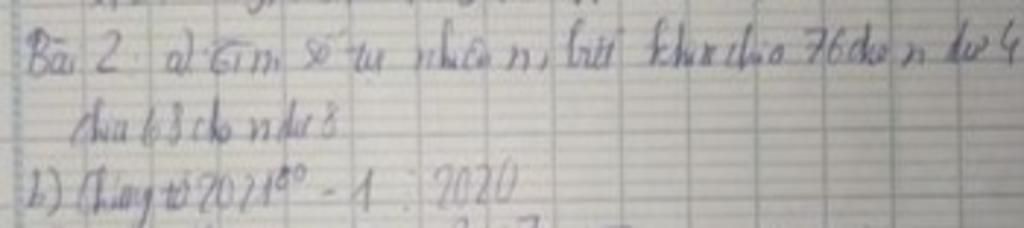 Bài 2 a) Tìm số tự nhiên n, biết khi chia 76 cho n dư 4
chia 63 cho n dư 3
b) Chứng tỏ 2021⁸⁰ - 1 ⋮ 2020